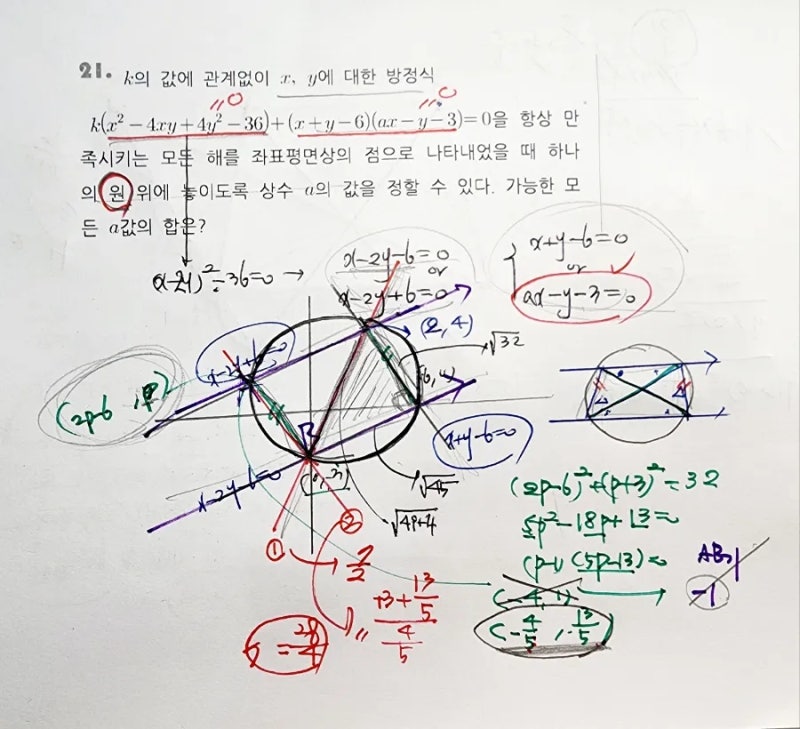 21. k의 값에 관계없이 x, y에 대한 방정식
k(x² − 4xy + 4y² − 36) + (x + y − 6)(ax − y − 3) = 0을 항상 만
족시키는 모든 해를 좌표평면상의 점으로 나타내었을 때 하나
의 원 위에 놓이도록 상수 a의 값을 정할 수 있다. 가능한 모
든 a값의 합은?
"0
"0
(x-2y)²-36=0 →
x-2y-6=0
or
x-2y+6=0
x+y-6=0
or
ax-y-3=0
(2, 4)
√32
x-2y+6=0
(2p-6, p)
x+y-6=0
x-2y-6=0
√45
√49+4
① → 7/2
②
(2p-6)²+(p+3)²=32
5p²-18p+13=0
(p-1)(5p-13)=0
(-4, 1)
-1